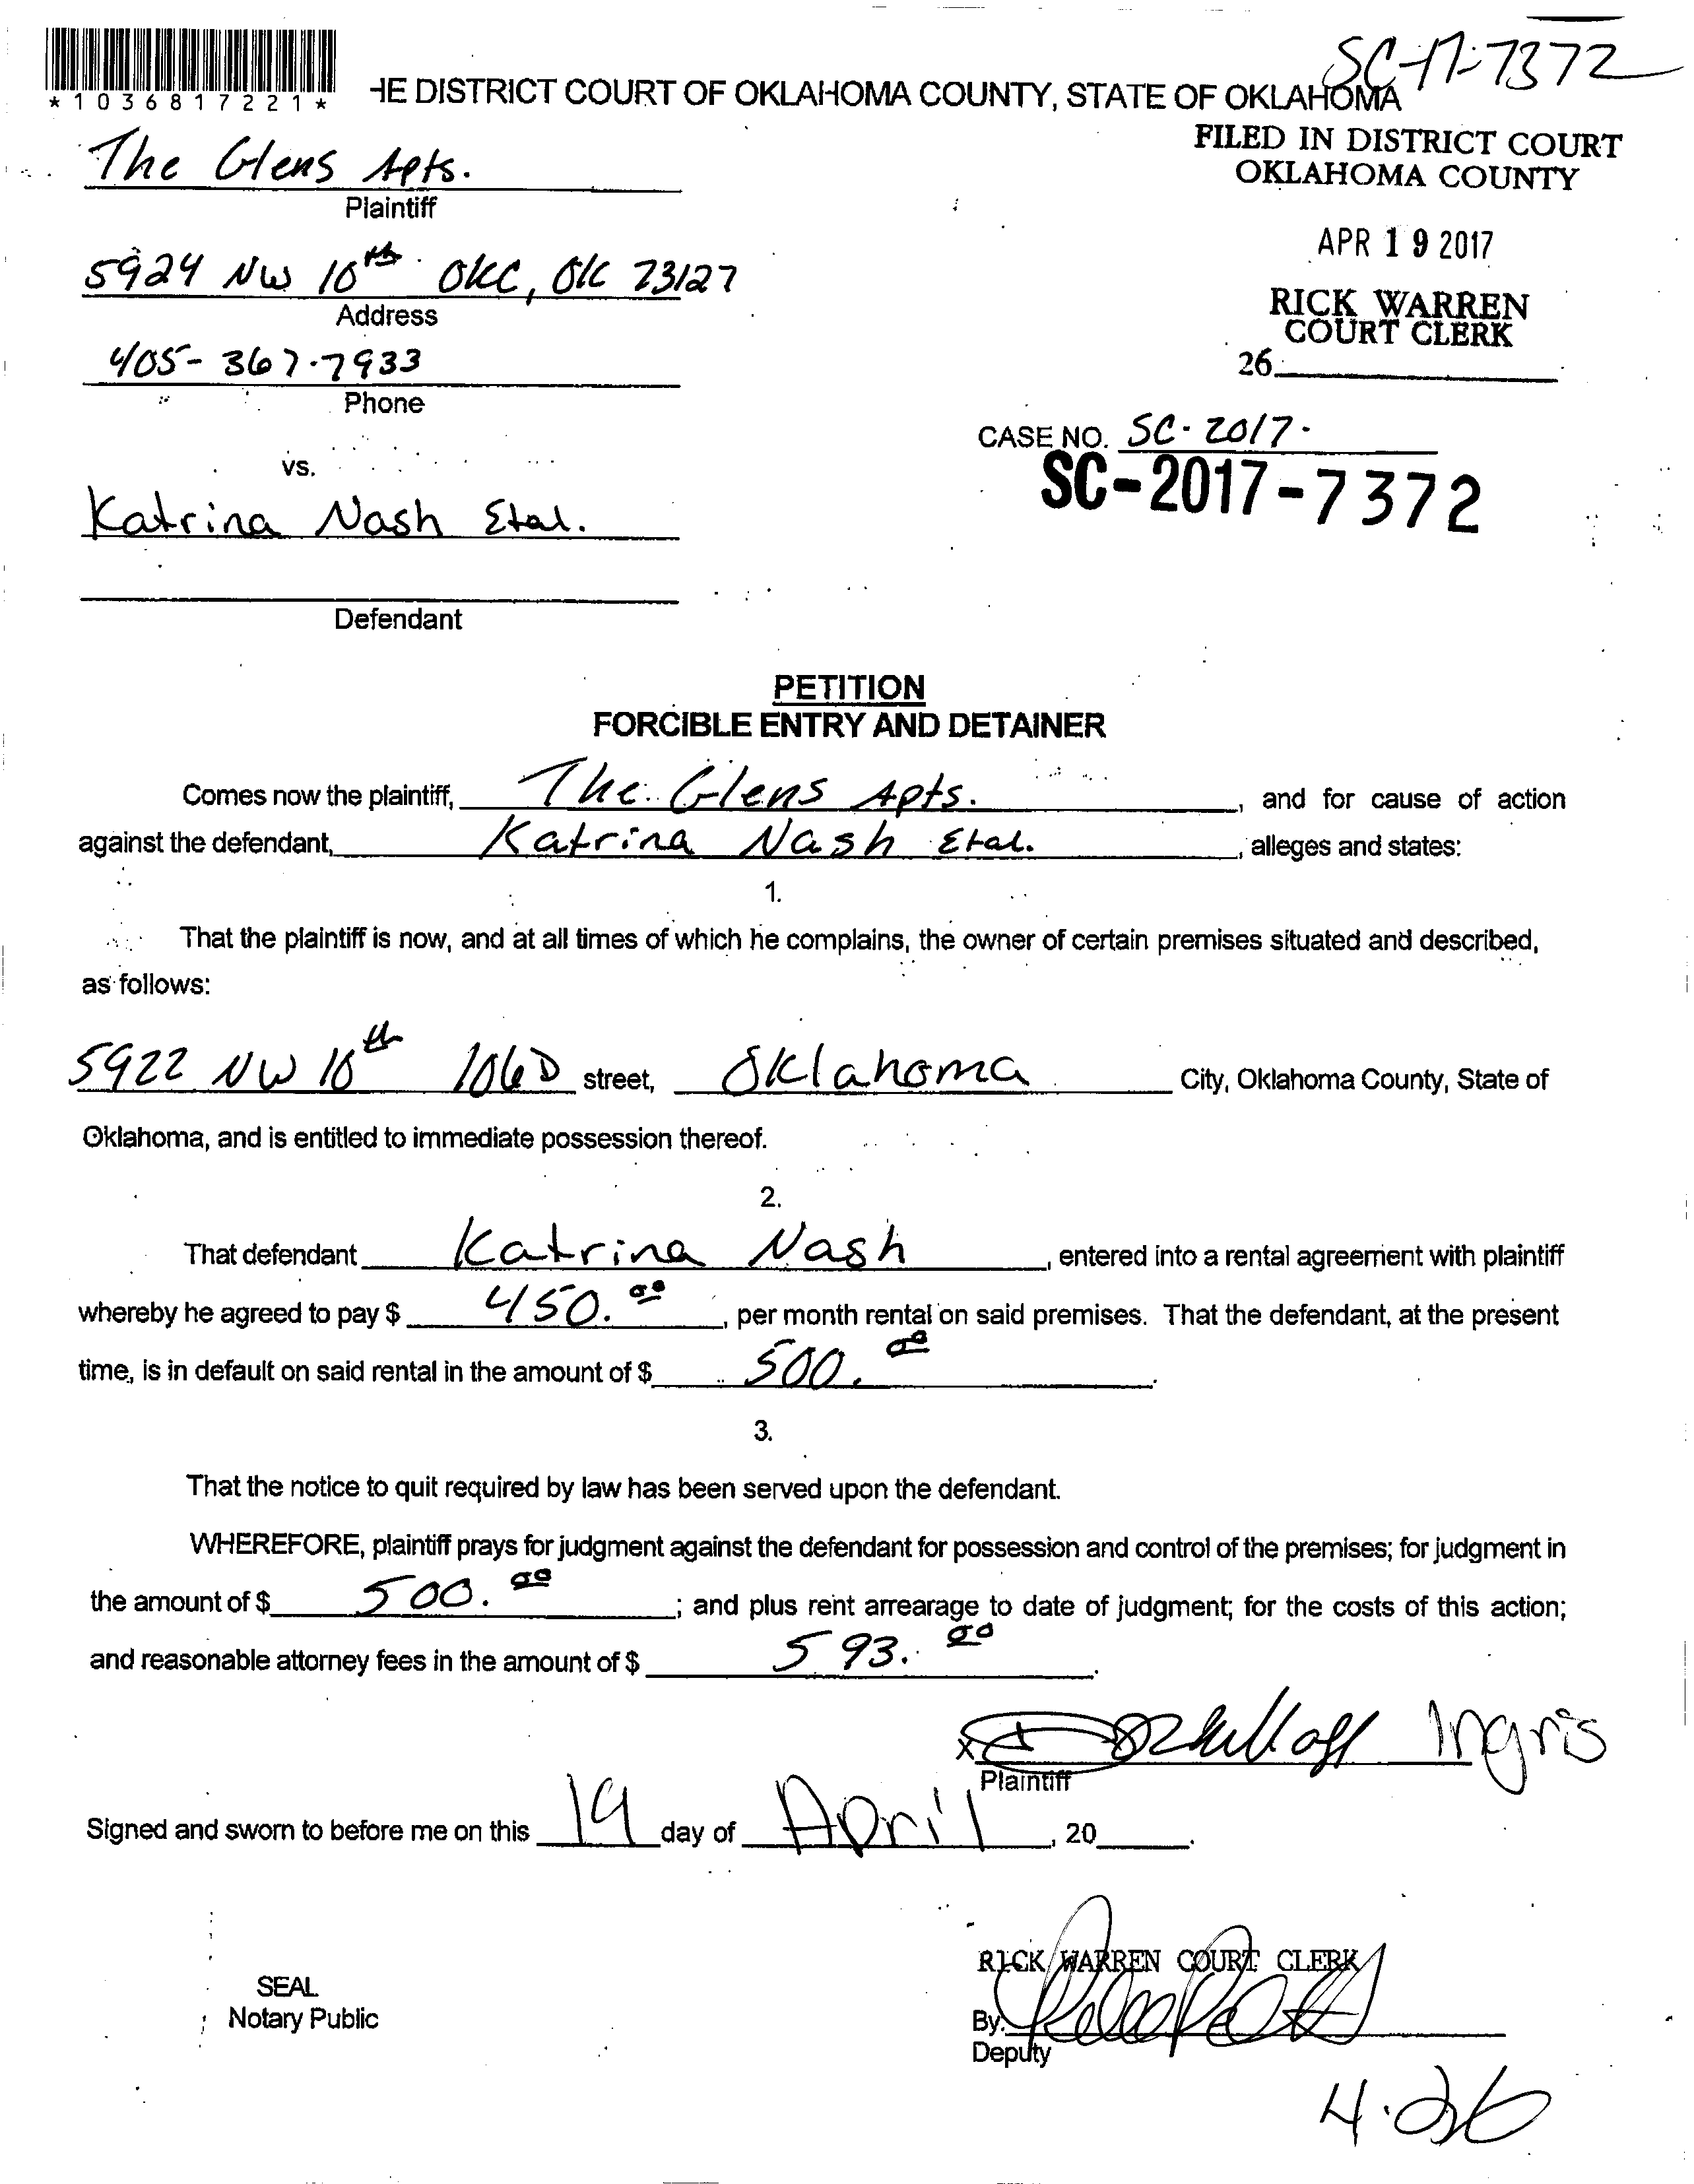 SC-17-7372
*1036817221*
HE DISTRICT COURT OF OKLAHOMA COUNTY, STATE OF OKLAHOMA
FILED IN DISTRICT COURT
OKLAHOMA COUNTY
The Glens Apts.
Plaintiff
APR 19 2017
5924 NW 10th OKC, OK 73127
Address
RICK WARREN
COURT CLERK
405-367-7933
26
Phone
CASE NO. SC-2017-
vs.
SC-2017-7372
Katrina Nash Etal.
Defendant
PETITION
FORCIBLE ENTRY AND DETAINER
Comes now the plaintiff, The Glens Apts. , and for cause of action
against the defendant, Katrina Nash Etal. , alleges and states:
1.
That the plaintiff is now, and at all times of which he complains, the owner of certain premises situated and described,
as follows:
5922 NW 10th 106D street, Oklahoma City, Oklahoma County, State of
Oklahoma, and is entitled to immediate possession thereof.
2.
That defendant Katrina Nash , entered into a rental agreement with plaintiff
whereby he agreed to pay $ 450.00 , per month rental on said premises. That the defendant, at the present
time, is in default on said rental in the amount of $ 500.00 .
3.
That the notice to quit required by law has been served upon the defendant.
WHEREFORE, plaintiff prays for judgment against the defendant for possession and control of the premises; for judgment in
the amount of $ 500.00 ; and plus rent arrearage to date of judgment; for the costs of this action;
and reasonable attorney fees in the amount of $ 593.00 .
x Ingris
Plaintiff
Signed and sworn to before me on this 19 day of April , 20 .
RICK WARREN COURT CLERK
SEAL
Notary Public
By.
Deputy
4.26